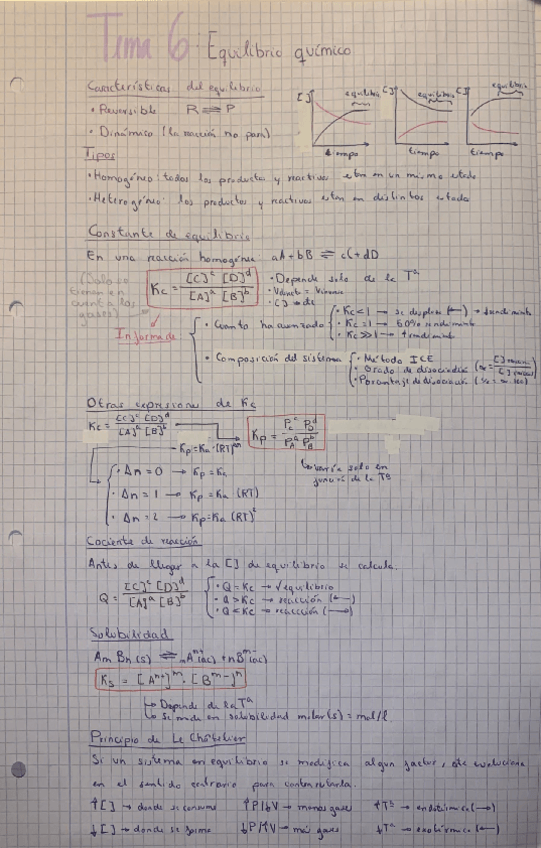 Tema 6: Equilibrio químico
Características del equilibrio
• Reversible R ⇌ P
• Dinámico (la reacción no para)
[ ] equilibrio tiempo
[ ] equilibrio tiempo
[ ] equilibrio tiempo
Tipos
• Homogéneo: todos los productos y reactivos estan en un mismo estado
• Heterogéneo: los productos y reactivos estan en distintos estados
Constante de equilibrio
En una reacción homogénea aA + bB ⇌ cC + dD
(Solo se tienen en cuenta los gases)
Kc = [C]^c [D]^d / [A]^a [B]^b
• Depende solo de la Tª
• Vdirect = Vinversa
• [ ] = cte
Informa de
• Cuanto ha avanzado
• Kc<1 → se desplaza (←) → rendimiento
• Kc=1 → 50% rendimiento
• Kc>>1 → ↑ rendimiento
• Composición del sistema
• Método ICE
• Grado de disociación
• Porcentaje de disociación
Otras expresiones de Kc
Kc = [C]^c [D]^d / [A]^a [B]^b
Kp = Pc^c PD^d / PA^a PB^b
Kp = Kc · (RT)^Δn
↳ varía solo en función de la Tª
• Δn = 0 → Kp = Kc
• Δn = 1 → Kp = Kc (RT)
• Δn = 2 → Kp = Kc (RT)²
Cociente de reacción
Antes de llegar a la [ ] de equilibrio se calcula.
Q = [C]^c [D]^d / [A]^a [B]^b
• Q = Kc → √ equilibrio
• Q > Kc → reacción (←)
• Q < Kc → reacción (→)
Solubilidad
Am Bn (s) ⇌ mA^n+ (ac) + nB^m- (ac)
Ks = [A^n+]^m · [B^m-]^n
↳ Depende de la Tª
↳ Se mide en solubilidad molar (s) = mol/l
Principio de Le Châtelier
Si un sistema en equilibrio se modifica algun factor, este evoluciona
en el sentido contrario para contrarestarla.
↑[ ] → donde se consume ↑P/↓V → menos gases ↑Tª → endotérmica (→)
↓[ ] → donde se forme ↓P/↑V → más gases ↓Tª → exotérmica (←)